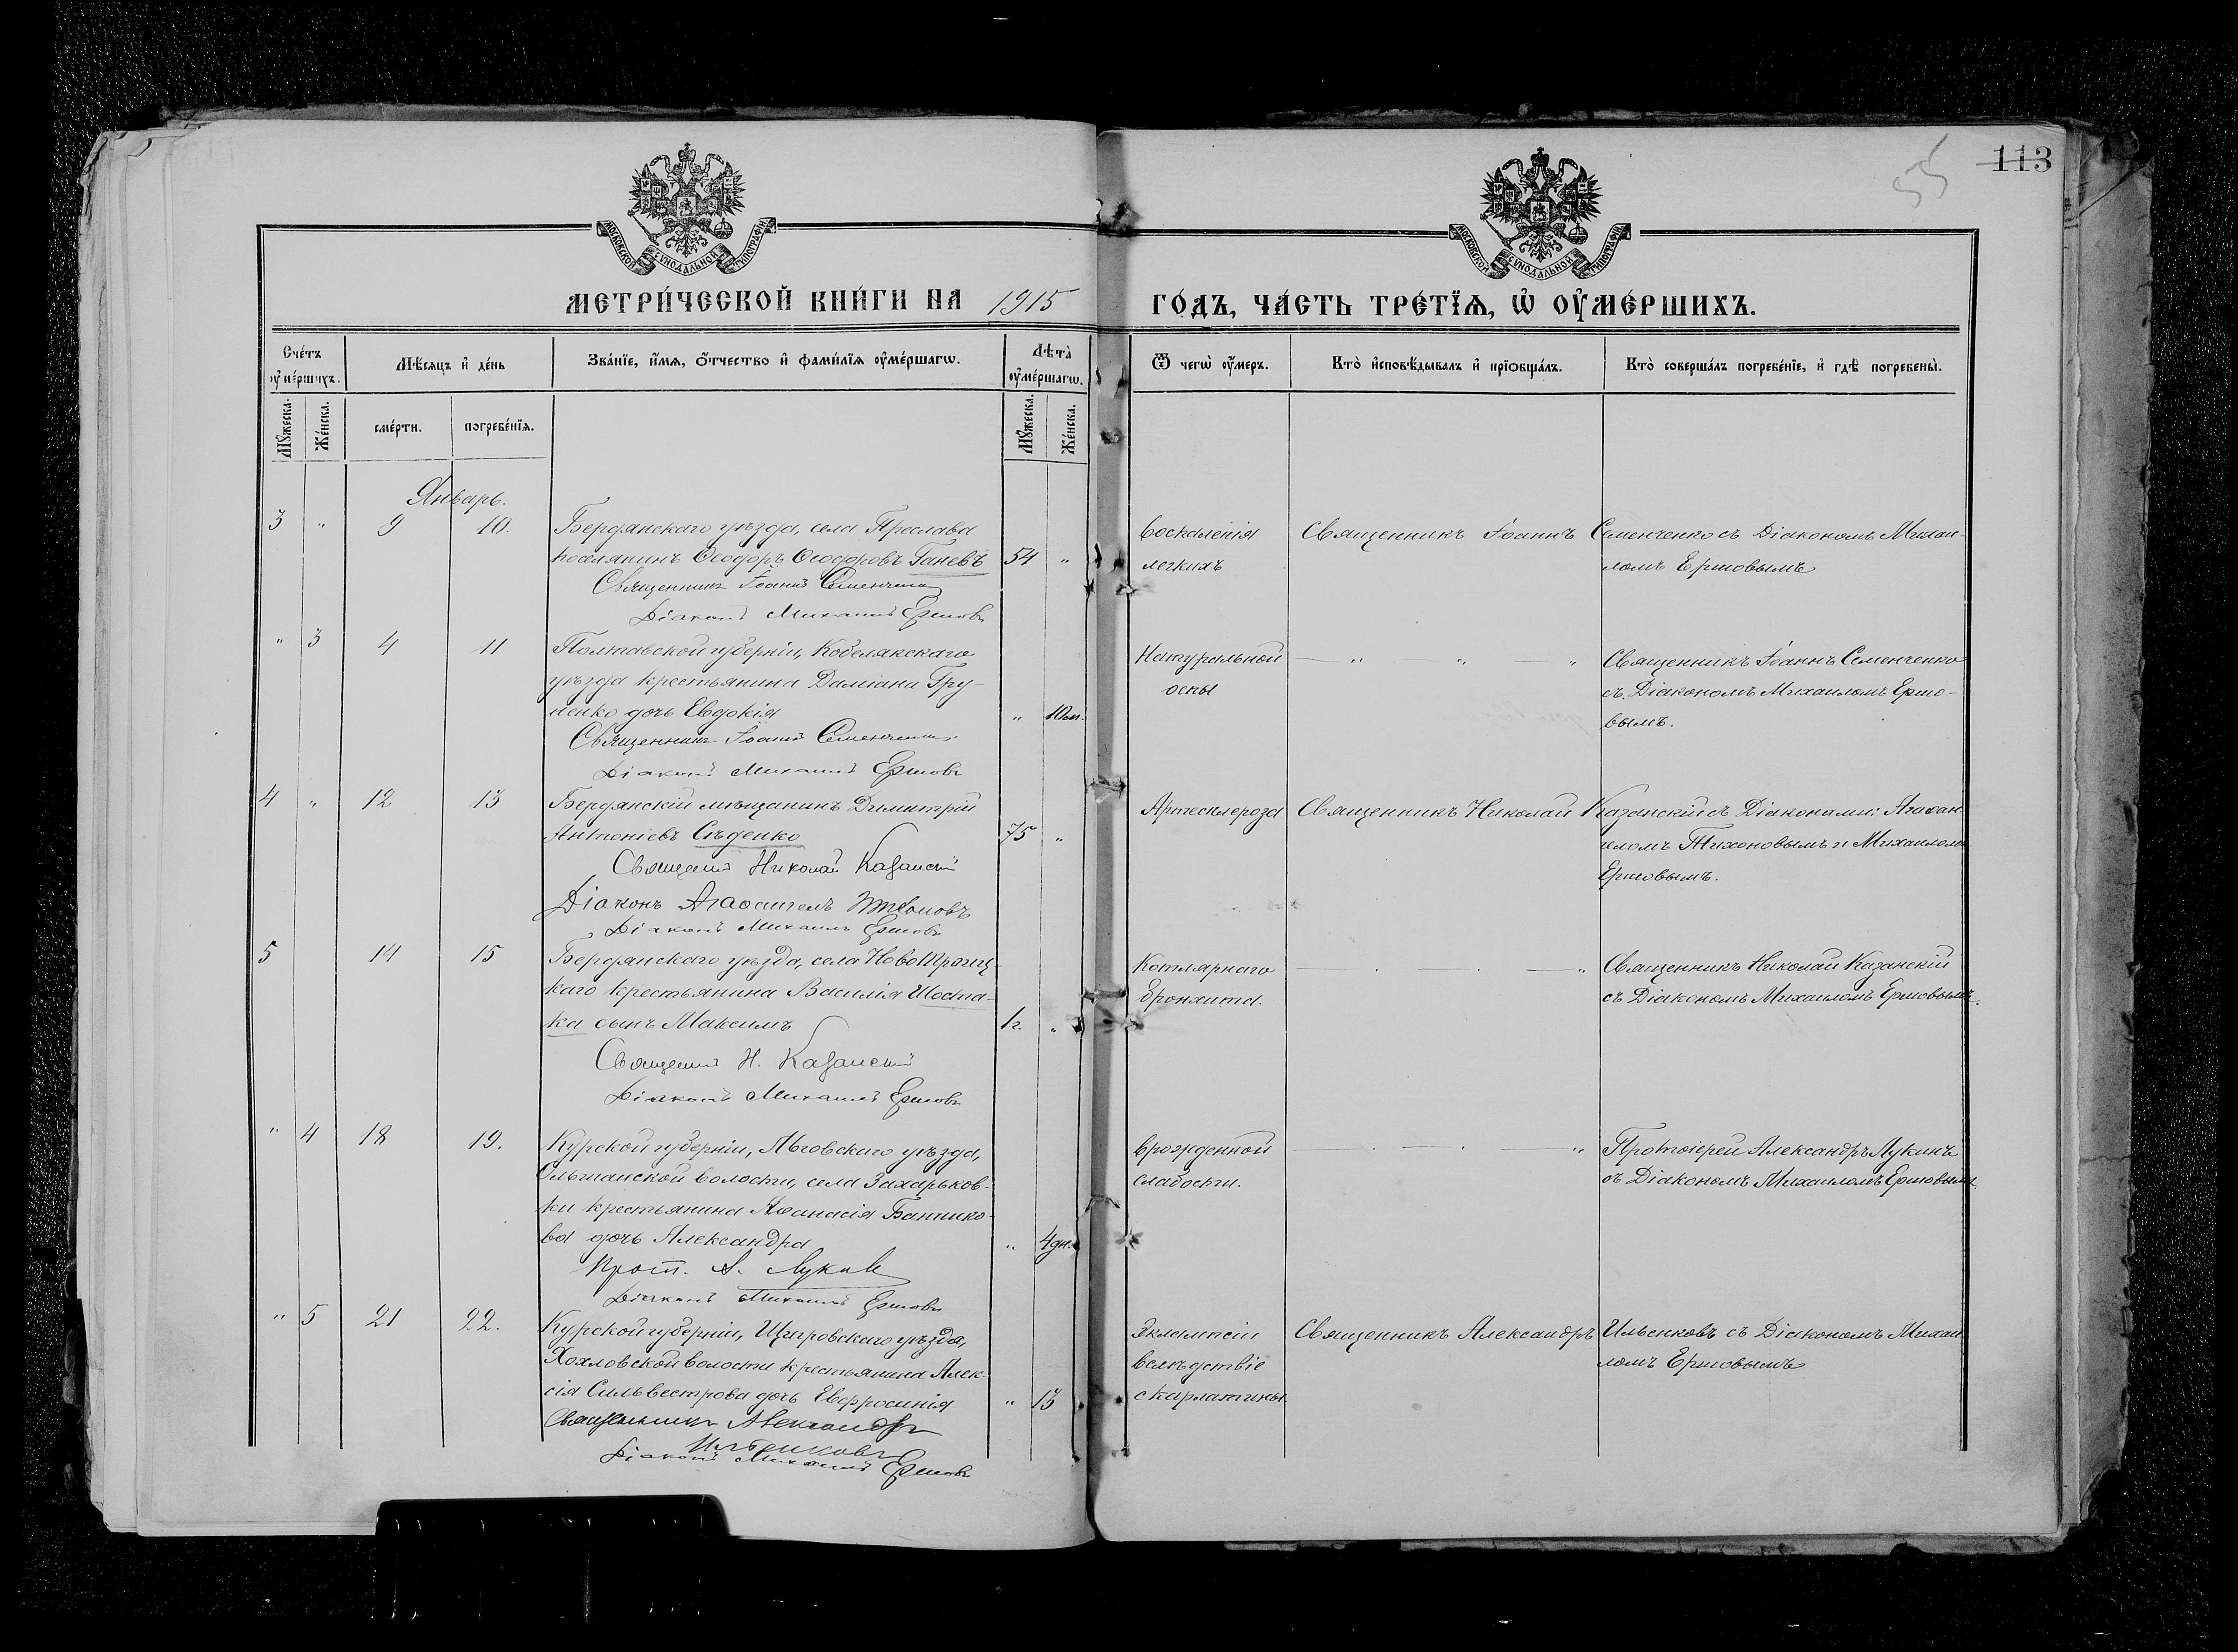 113
55
МОСКОВСКОЙ СѴНОДАЛЬНОЙ ТИПОГРАФІИ
МОСКОВСКОЙ СѴНОДАЛЬНОЙ ТИПОГРАФІИ
МЕТРИ́ЧЕСКОЙ КНИ́ГИ НА 1915 ГО́ДЪ, ЧА́СТЬ ТРЕ́ТЇѦ, Ѡ҆ ОУ҆МЕ́РШИХЪ.
Сче́тъ оу҆ме́ршихъ.
Мѣ́сяцъ и҆ де́нь
Зва́нїе, и҆́мѧ, ѻ҆́тчество и҆ фами́лїѧ оу҆ме́ршагѡ.
Лѣта̀ оу҆ме́ршагѡ.
Ѿ чегѡ̀ оу҆́меръ.
Кто̀ и҆сповѣ́дывалъ и҆ прїѻбща́лъ.
Кто̀ соверша́лъ погребе́нїе, и҆ гдѣ̀ погребены̀.
Мꙋ́жеска.
Же́нска.
сме́рти.
погребе́нїѧ.
Мꙋ́жеска.
Же́нска.
Январь.
3 " 9 10. Бердянскаго уѣзда, села Преслава
поселянинъ Ѳеодоръ Ѳеодоровъ Ганевъ 54 "
Священникъ Іоаннъ Семенченко
Діаконъ Михаилъ Ершовъ
Воспаленія
легкихъ
Священникъ Іоаннъ Семенченко съ Діакономъ Михаи-
ломъ Ершовымъ
" 3 4 11 Полтавской губерніи, Кобелякскаго
уѣзда крестьянина Даміана Гру-
ненко дочь Евдокія " 10 м.
Священникъ Іоаннъ Семенченко
Діаконъ Михаилъ Ершовъ
Натуральной
оспы
— " — " — "
Священникъ Іоаннъ Семенченко
съ Діакономъ Михаиломъ Ершо-
вымъ.
4 " 12 13 Бердянскій мѣщанинъ Димитрій
Антоніевъ Сѣденко 75 "
Священникъ Николай Казанскій
Діаконъ Агаѳангелъ Тихоновъ
Діаконъ Михаилъ Ершовъ
Артеклероза
Священникъ Николай Казанскій съ Діаконами: Агаѳан-
геломъ Тихоновымъ и Михаиломъ
Ершовымъ.
5 14 15 Бердянскаго уѣзда, села НовоТроиц-
каго крестьянина Василія Шоста-
ка сынъ Максимъ 1 г. "
Священникъ Н. Казанскій
Діаконъ Михаилъ Ершовъ
Капилярнаго
бронхита.
— " — " — "
Священникъ Николай Казанскій
съ Діакономъ Михаиломъ Ершовымъ.
" 4 18 19. Курской губерніи, Льговскаго уѣзда,
Ольшанской волости, села Захарьков-
ки крестьянина Аѳанасія Баннико-
ва дочь Александра " 4 дн.
Прот. А. Лукинъ
Діаконъ Михаилъ Ершовъ
врожденной
слабости.
— " — " — "
Протоіерей Александръ Лукинъ
съ Діакономъ Михаиломъ Ершовымъ.
" 5 21 22. Курской губерніи, Щигровскаго уѣзда,
Хохловской волости крестьянина Алек-
сія Сильвестрова дочь Евфросинія " 13
Священникъ Александръ
Ильенковъ
Діаконъ Михаилъ Ершовъ
Эклампсіи
вслѣдствіе
скарлатины
Священникъ Александръ Ильенковъ съ Діакономъ Михаи-
ломъ Ершовымъ